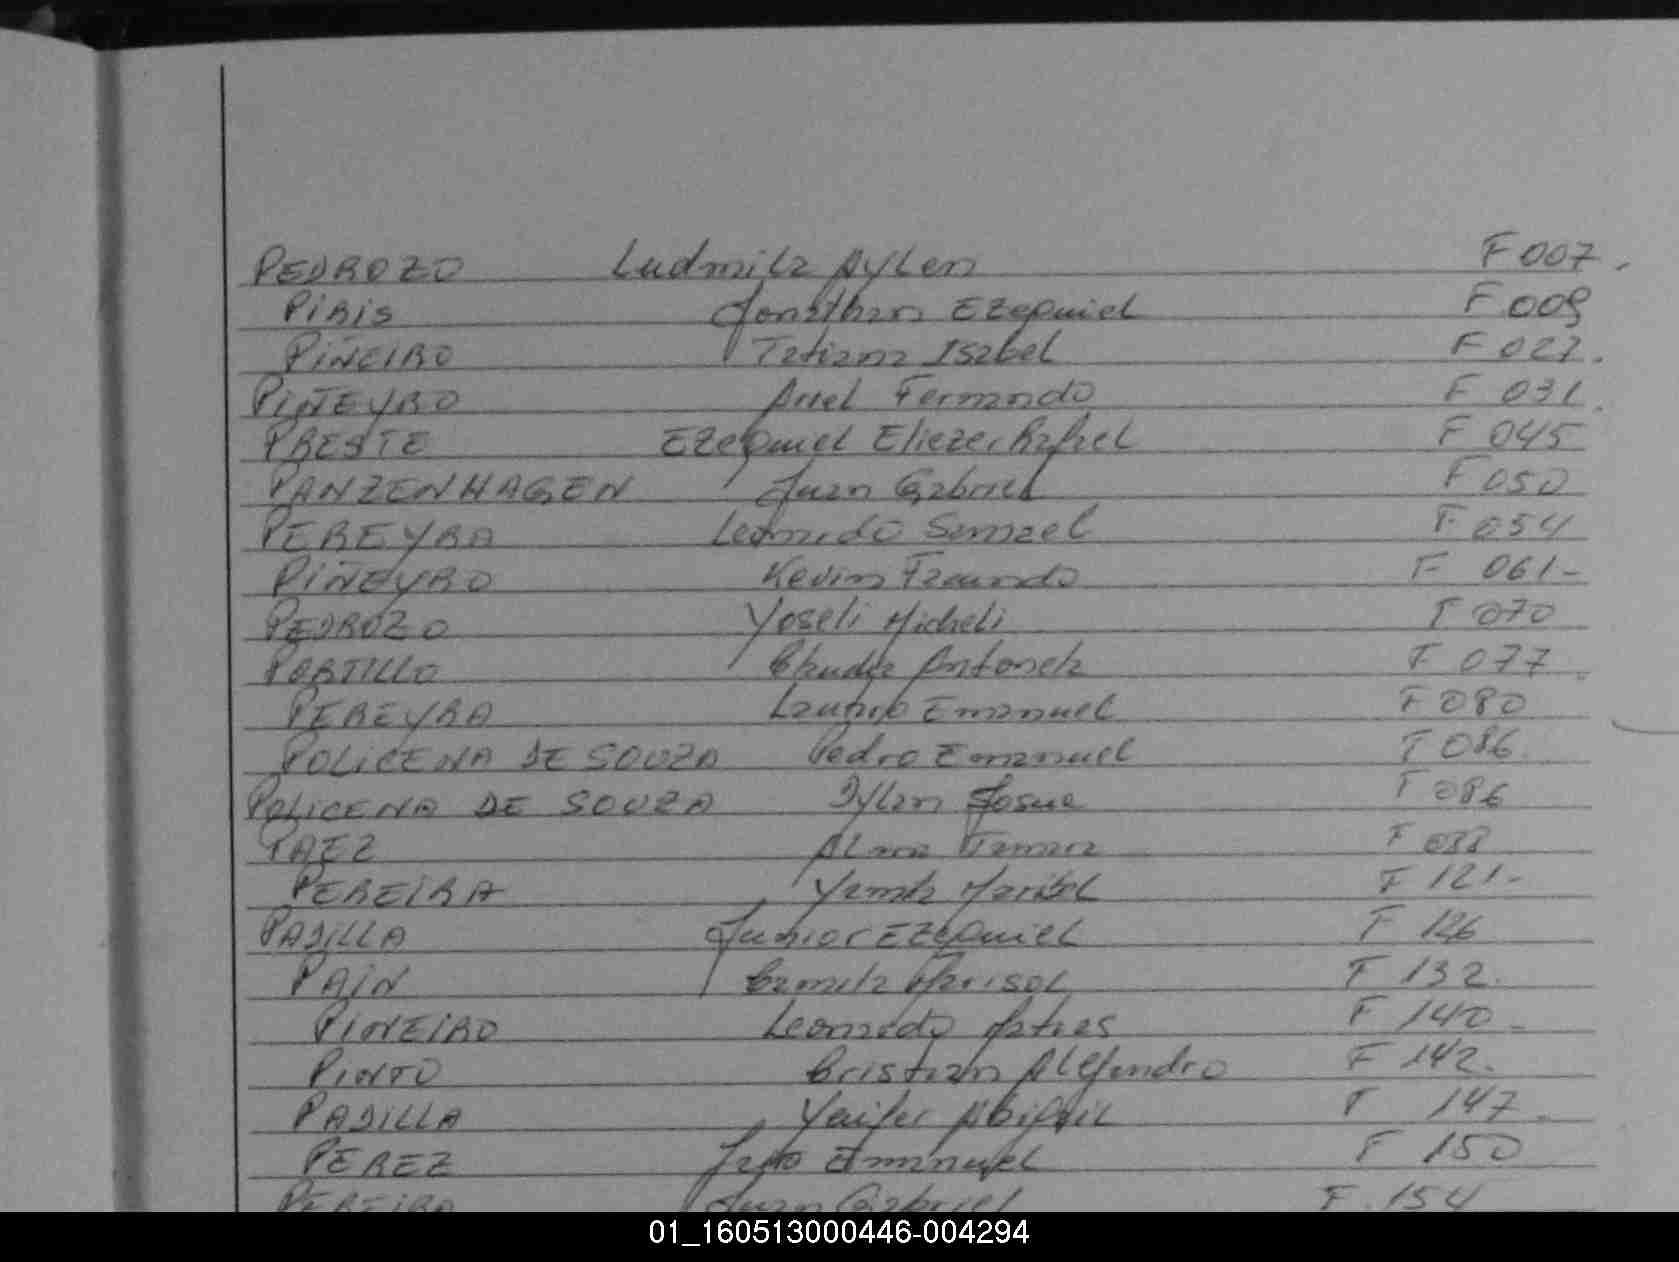 PEDROZO Ludmila Aylen F 007.
PIRIS Jonathan Ezequiel F 009
PIÑEIRO Tatiana Isabel F 027.
PIÑEYRO Ariel Fernando F 031.
PRESTE Ezequiel Eliezer Rafael F 045
PANZENHAGEN Juan Gabriel F 050
PEREYRA Leonardo Samael F 054
PIÑEYRO Kevin Facundo F 061-
PEDROZO Yoseli Micheli F 070
PORTILLO Claudia Antonela F 077.
PEREYRA Lautaro Emanuel F 080
POLICENA DE SOUZA Pedro Emanuel F 086.
POLICENA DE SOUZA Dylan Josue F 086
PAEZ Tamara F 088
PEREIRA Yamila Maribel F 121-
PADILLA Junior Ezequiel F 126
PAIN Camila Marisol F 132.
PINEIRO Leonardo Matias F 140-
PINTO Cristian Alejandro F 142.
PADILLA Abigail F 147.
PEREZ Emanuel F 150
PEREIRA Juan Gabriel F. 154
01_160513000446-004294